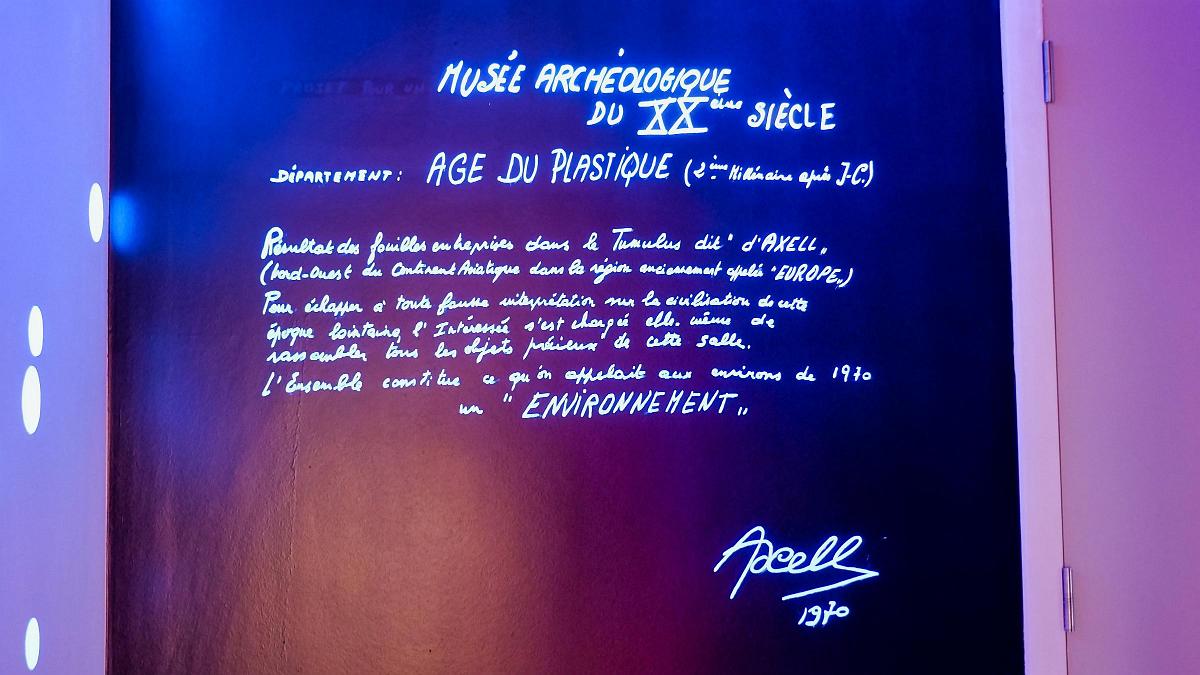 PROJET POUR UN
MUSÉE ARCHÉOLOGIQUE
DU XXème SIÈCLE
DÉPARTEMENT: AGE DU PLASTIQUE (2ème Millénaire après J-C.)
Résultat des fouilles entreprises dans le Tumulus dit " d'AXELL„
(bord-Ouest du Continent Asiatique dans la région anciennement appelée "EUROPE„)
Pour échapper à toute fausse interprétation sur la civilisation de cette
époque lointaine, l'Intéressée s'est chargée elle-même de
rassembler tous les objets "précieux" de cette salle.
L'Ensemble constitue ce qu'on appelait aux environs de 1970
un " ENVIRONNEMENT„
Axell
1970